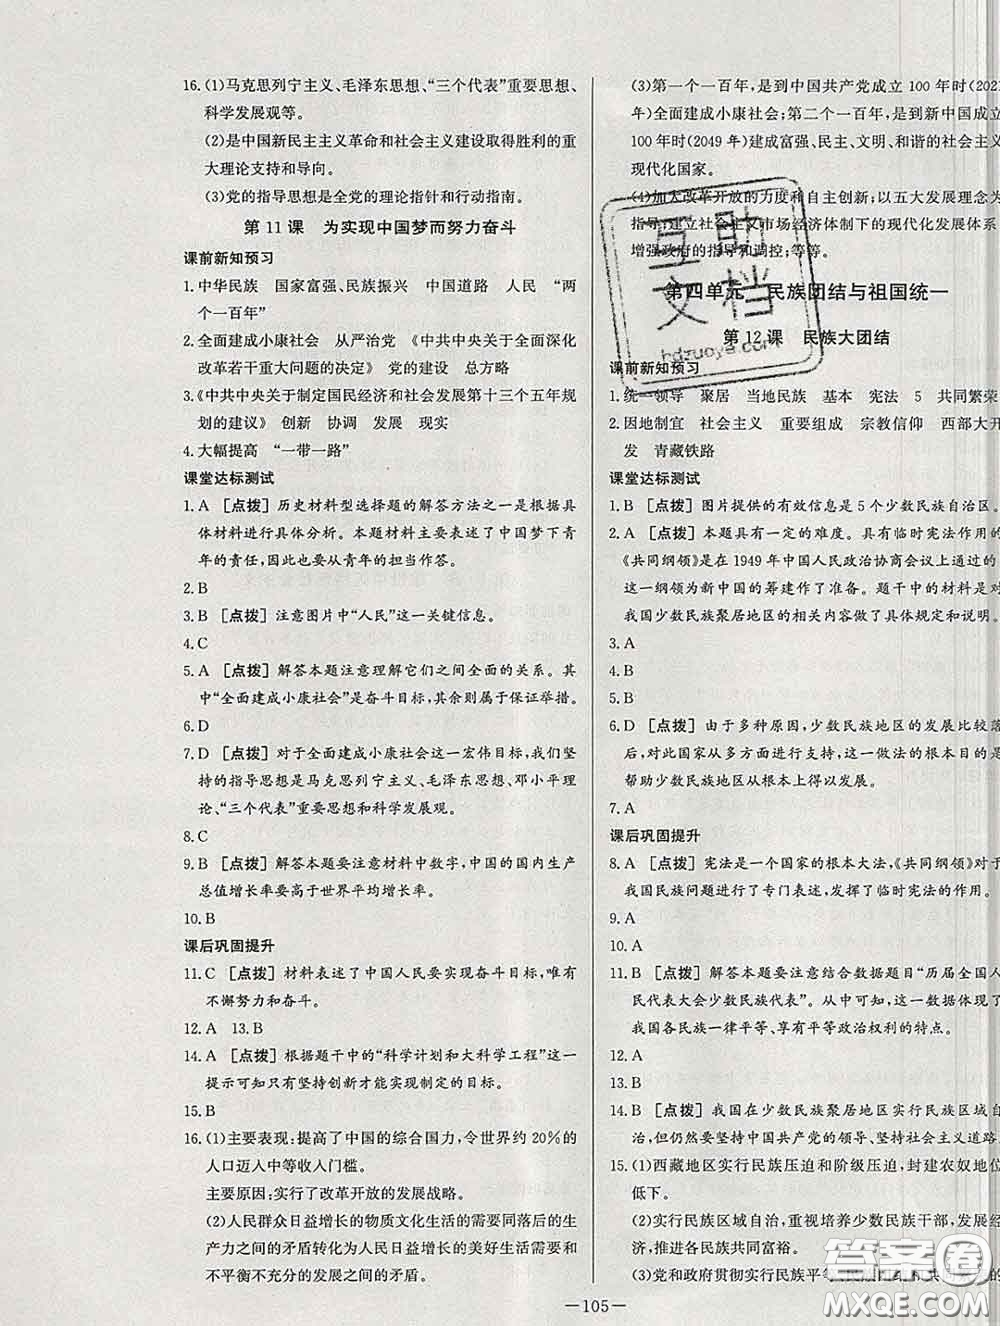 16.(1)马克思列宁主义、毛泽东思想、“三个代表”重要思想、
科学发展观等。
(2)是中国新民主主义革命和社会主义建设取得胜利的重
大理论支持和导向。
(3)党的指导思想是全党的理论指针和行动指南。
第11课 为实现中国梦而努力奋斗
课前新知预习
1.中华民族 国家富强、民族振兴 中国道路 人民 “两
个一百年”
2.全面建成小康社会 从严治党 《中共中央关于全面深化
改革若干重大问题的决定》 党的建设 总方略
3.《中共中央关于制定国民经济和社会发展第十三个五年规
划的建议》 创新 协调 发展 现实
4.大幅提高 “一带一路”
课堂达标测试
1.A [点拨] 历史材料型选择题的解答方法之一是根据具
体材料进行具体分析。本题材料主要表述了中国梦下青
年的责任,因此也要从青年的担当作答。
2.B
3.B [点拨] 注意图片中“人民”这一关键信息。
4.C
5.A [点拨] 解答本题注意理解它们之间全面的关系。其
中“全面建成小康社会”是奋斗目标,其余则属于保证举措。
6.D
7.D [点拨] 对于全面建成小康社会这一宏伟目标,我们坚
持的指导思想是马克思列宁主义、毛泽东思想、邓小平理
论、“三个代表”重要思想和科学发展观。
8.C
9.B [点拨] 解答本题要注意材料中数字,中国的国内生产
总值增长率要高于世界平均增长率。
10.B
课后巩固提升
11.C [点拨] 材料表述了中国人民要实现奋斗目标,唯有
不懈努力和奋斗。
12.A 13.B
14.A [点拨] 根据题干中的“科学计划和大科学工程”这一
提示可知只有坚持创新才能实现制定的目标。
15.B
16.(1)主要表现:提高了中国的综合国力,令世界约20%的
人口迈入中等收入门槛。
主要原因:实行了改革开放的发展战略。
(2)人民群众日益增长的物质文化生活的需要同落后的生
产力之间的矛盾转化为人民日益增长的美好生活需要和
不平衡不充分的发展之间的矛盾。
(3)第一个一百年,是到中国共产党成立100年时(2021
年)全面建成小康社会;第二个一百年,是到新中国成立
100年时(2049年)建成富强、民主、文明、和谐的社会主义
现代化国家。
(4)加大改革开放的力度和自主创新;以五大发展理念为
指导;建立社会主义市场经济体制下的现代化发展体系
增强政府的指导和调控;等等。
第四单元 民族团结与祖国统一
第12课 民族大团结
课前新知预习
1.统一领导 聚居 当地民族 基本 宪法 5 共同繁荣
2.因地制宜 社会主义 重要组成 宗教信仰 西部大开
发 青藏铁路
课堂达标测试
1.B [点拨] 图片提供的有效信息是5个少数民族自治区。
2.A [点拨] 本题具有一定的难度。具有临时宪法作用的
《共同纲领》是在1949年中国人民政治协商会议上通过的
这一纲领为新中国的筹建作了准备。题干中的材料是对
我国少数民族聚居地区的相关内容做了具体规定和说明。
3.A
4.B
5.B
6.D [点拨] 由于多种原因,少数民族地区的发展比较落
后,对此国家从多方面进行支持,这一做法的根本目的是
帮助少数民族地区从根本上得以发展。
7.A
课后巩固提升
8.A [点拨] 宪法是一个国家的根本大法,《共同纲领》对于
我国民族问题进行了专门表述,发挥了临时宪法的作用。
9.A
10.A
11.B [点拨] 解答本题要注意结合数据题目“历届全国人
民代表大会少数民族代表”。从中可知,这一数据体现了
我国各民族一律平等、享有平等政治权利的特点。
12.A
13.B
14.B [点拨] 我国在少数民族聚居地区实行民族区域自
治,但仍然要坚持中国共产党的领导、坚持社会主义道路
15.(1)西藏地区实行民族压迫和阶级压迫,封建农奴地位
低下。
(2)实行民族区域自治,重视培养少数民族干部,发展经
济,促进各民族共同富裕。
(3)党和政府贯彻实行民族平等、民族团结和共同
—105—
互助文档
hdzuoye.com
答案圈
MXQE.COM